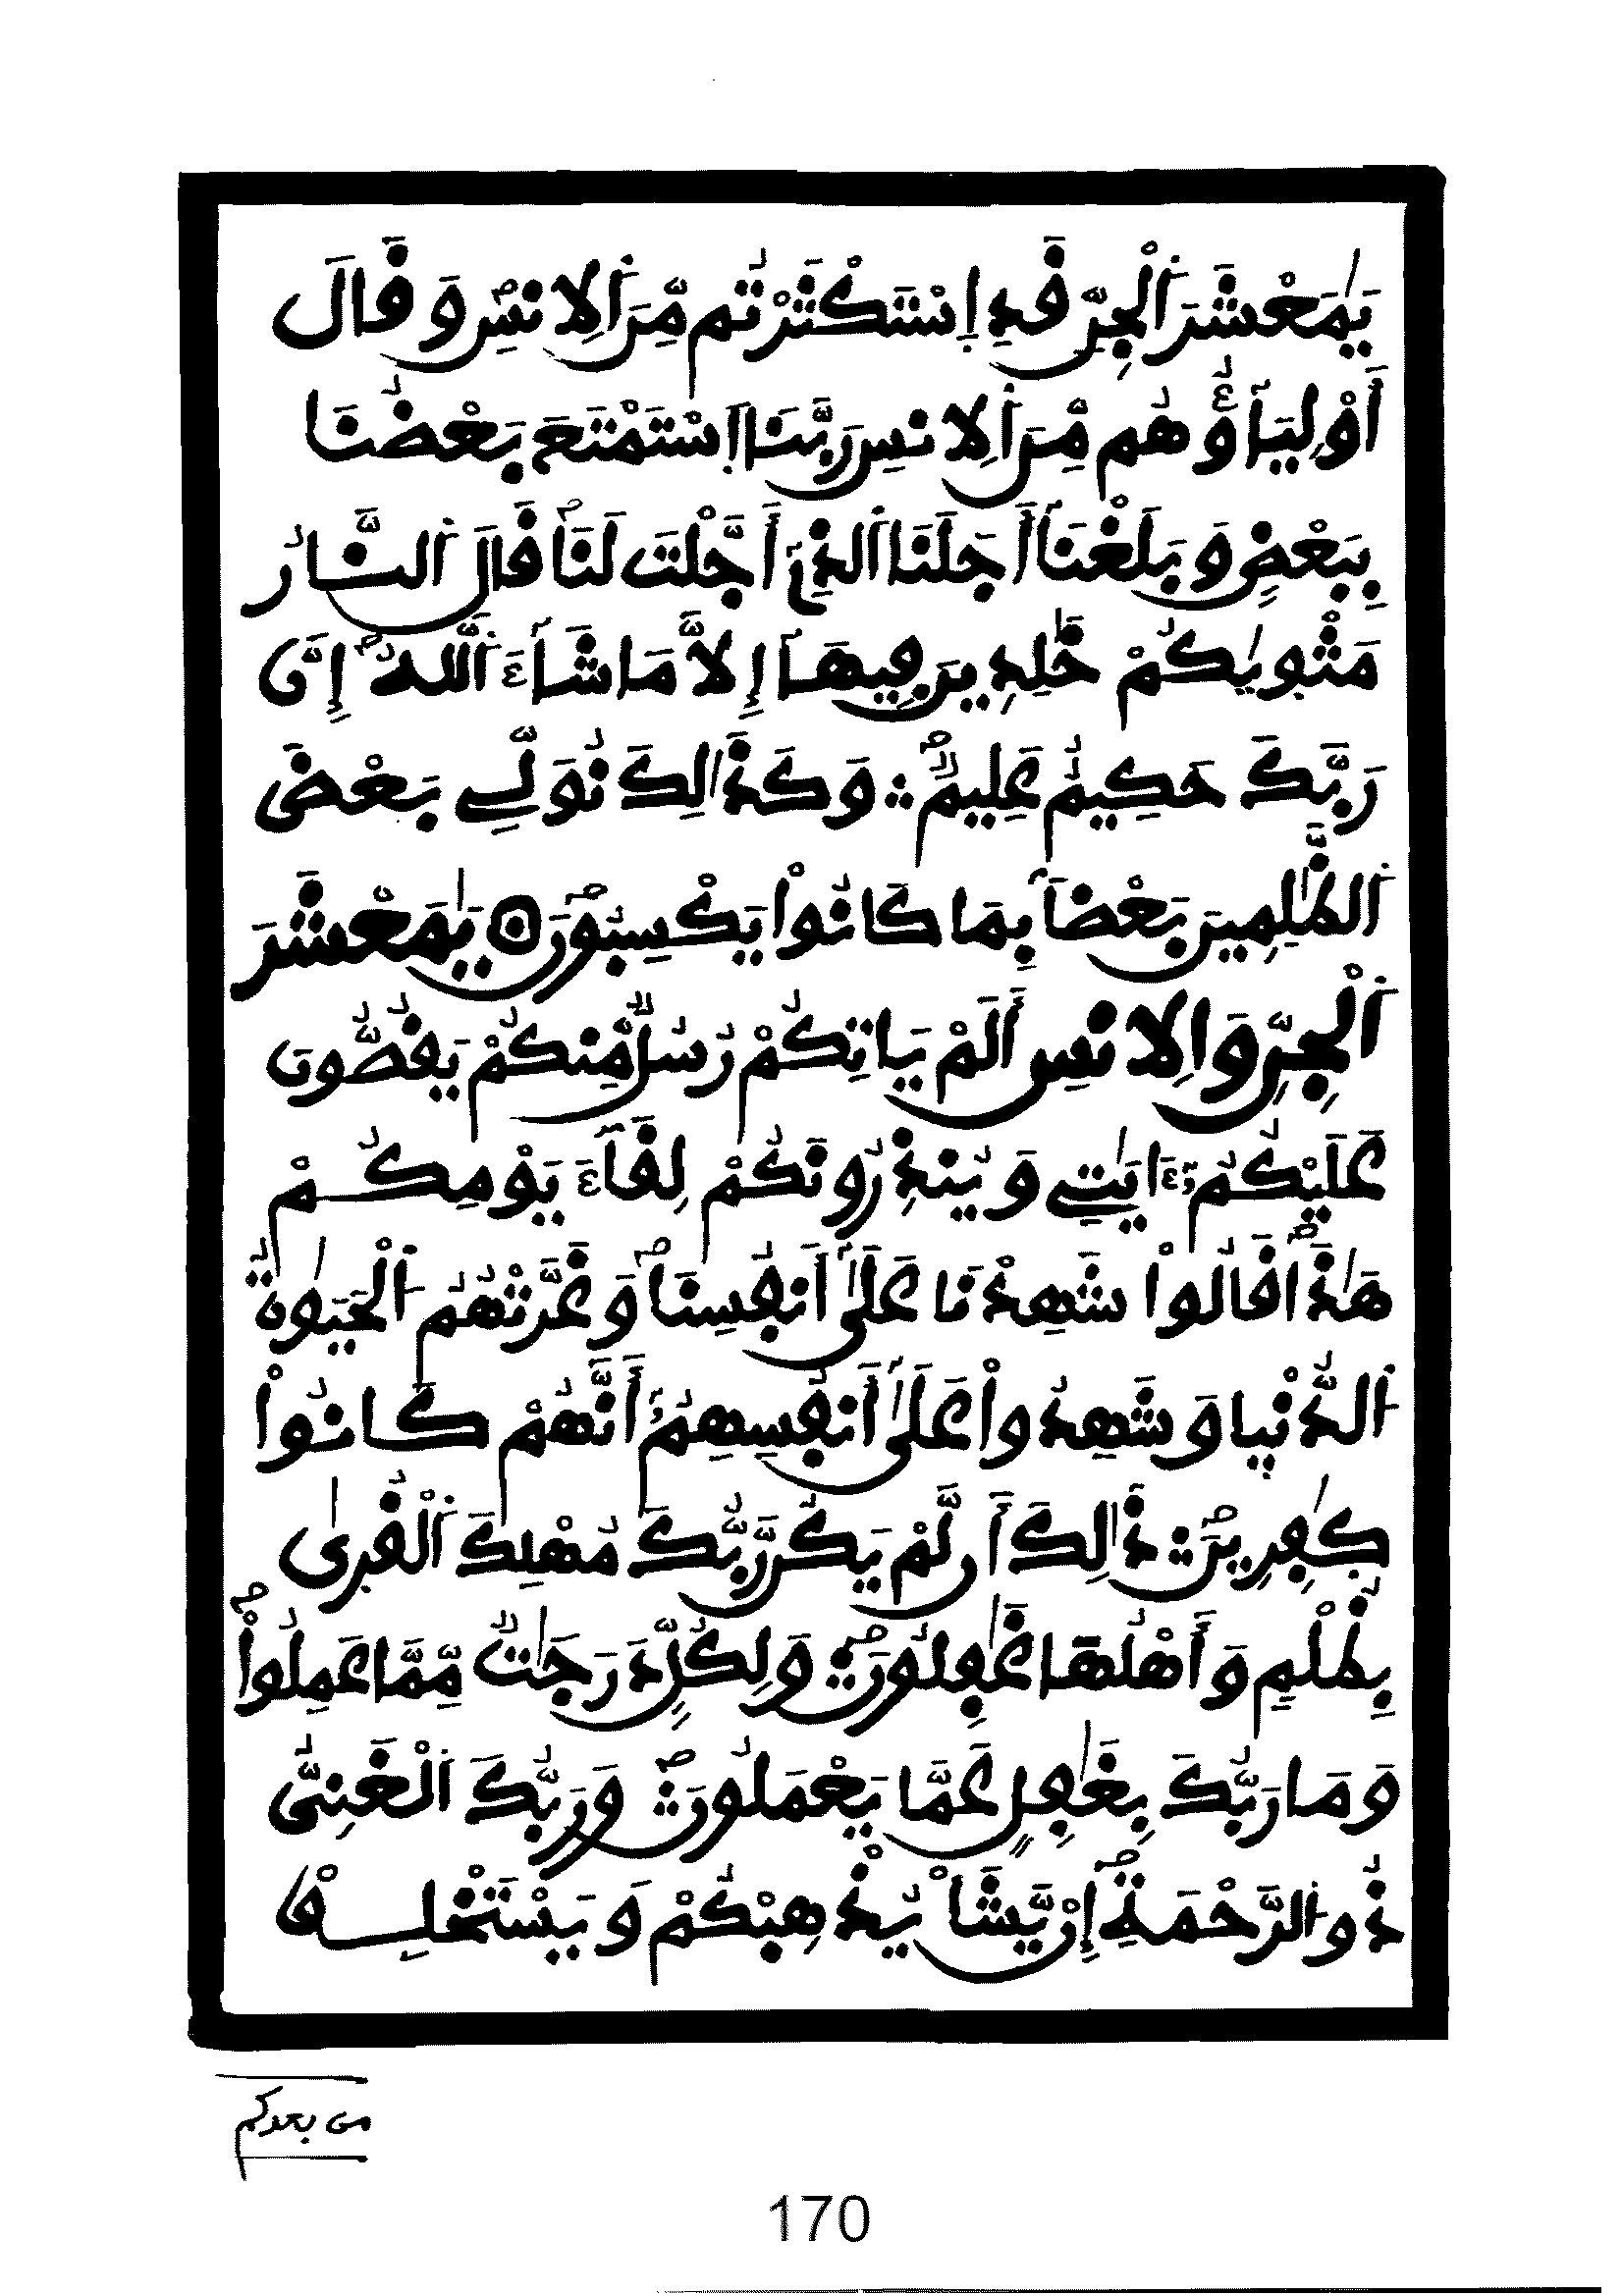 يَٰمَعْشَرَ اَ۬لْجِنِّ قَدِ اِ۪سْتَكْثَرْتُم مِّنَ اَ۬لِانسِ وَقَالَ
أَوْلِيَآؤُهُم مِّنَ اَ۬لِانسِ رَبَّنَا اَ۪سْتَمْتَعَ بَعْضُنَا
بِبَعْضٖ وَبَلَغْنَآ أَجَلَنَا اَ۬لذِےٓ أَجَّلْتَ لَنَا قَالَ اَ۬لنَّارُ
مَثْوٜيٰكُمْ خَٰلِدِينَ فِيهَآ إِلَّا مَا شَآءَ اَ۬للَّهُ إِنَّ
رَبَّكَ حَكِيمٌ عَلِيمٌ وَكَذَٰلِكَ نُوَلِّے بَعْضَ
اَ۬لظَّٰلِمِينَ بَعْضاَۢ بِمَا كَانُواْ يَكْسِبُونَ يَٰمَعْشَرَ
اَ۬لْجِنِّ وَالِانسِ أَلَمْ يَاتِكُمْ رُسُلٌ مِّنكُمْ يَقُصُّونَ
عَلَيْكُمُۥٓ ءَايَٰتِے وَيُنذِرُونَكُمْ لِقَآءَ يَوْمِكُمْ
هَٰذَا قَالُواْ شَهِدْنَا عَلَيٰٓ أَنفُسِنَا وَغَرَّتْهُمُ اُ۬لْحَيَوٰةُ
اُ۬لدُّنْي۪ا وَشَهِدُواْ عَلَيٰٓ أَنفُسِهِمُۥٓ أَنَّهُمْ كَانُواْ
كٰ۪فِرِينَ ذَٰلِكَ أَن لَّمْ يَكُن رَّبُّكَ مُهْلِكَ اَ۬لْقُر۪يٰ
بِظُلْمٖ وَأَهْلُهَا غَٰفِلُونَ وَلِكُلّٖ دَرَجَٰتٌ مِّمَّا عَمِلُواْ
وَمَا رَبُّكَ بِغَٰفِلٍ عَمَّا يَعْمَلُونَ وَرَبُّكَ اَ۬لْغَنِيُّ
ذُو اُ۬لرَّحْمَةِ إِنْ يَّشَأْ يُذْهِبْكُمْ وَيَسْتَخْلِفْ
من بعدكم
170